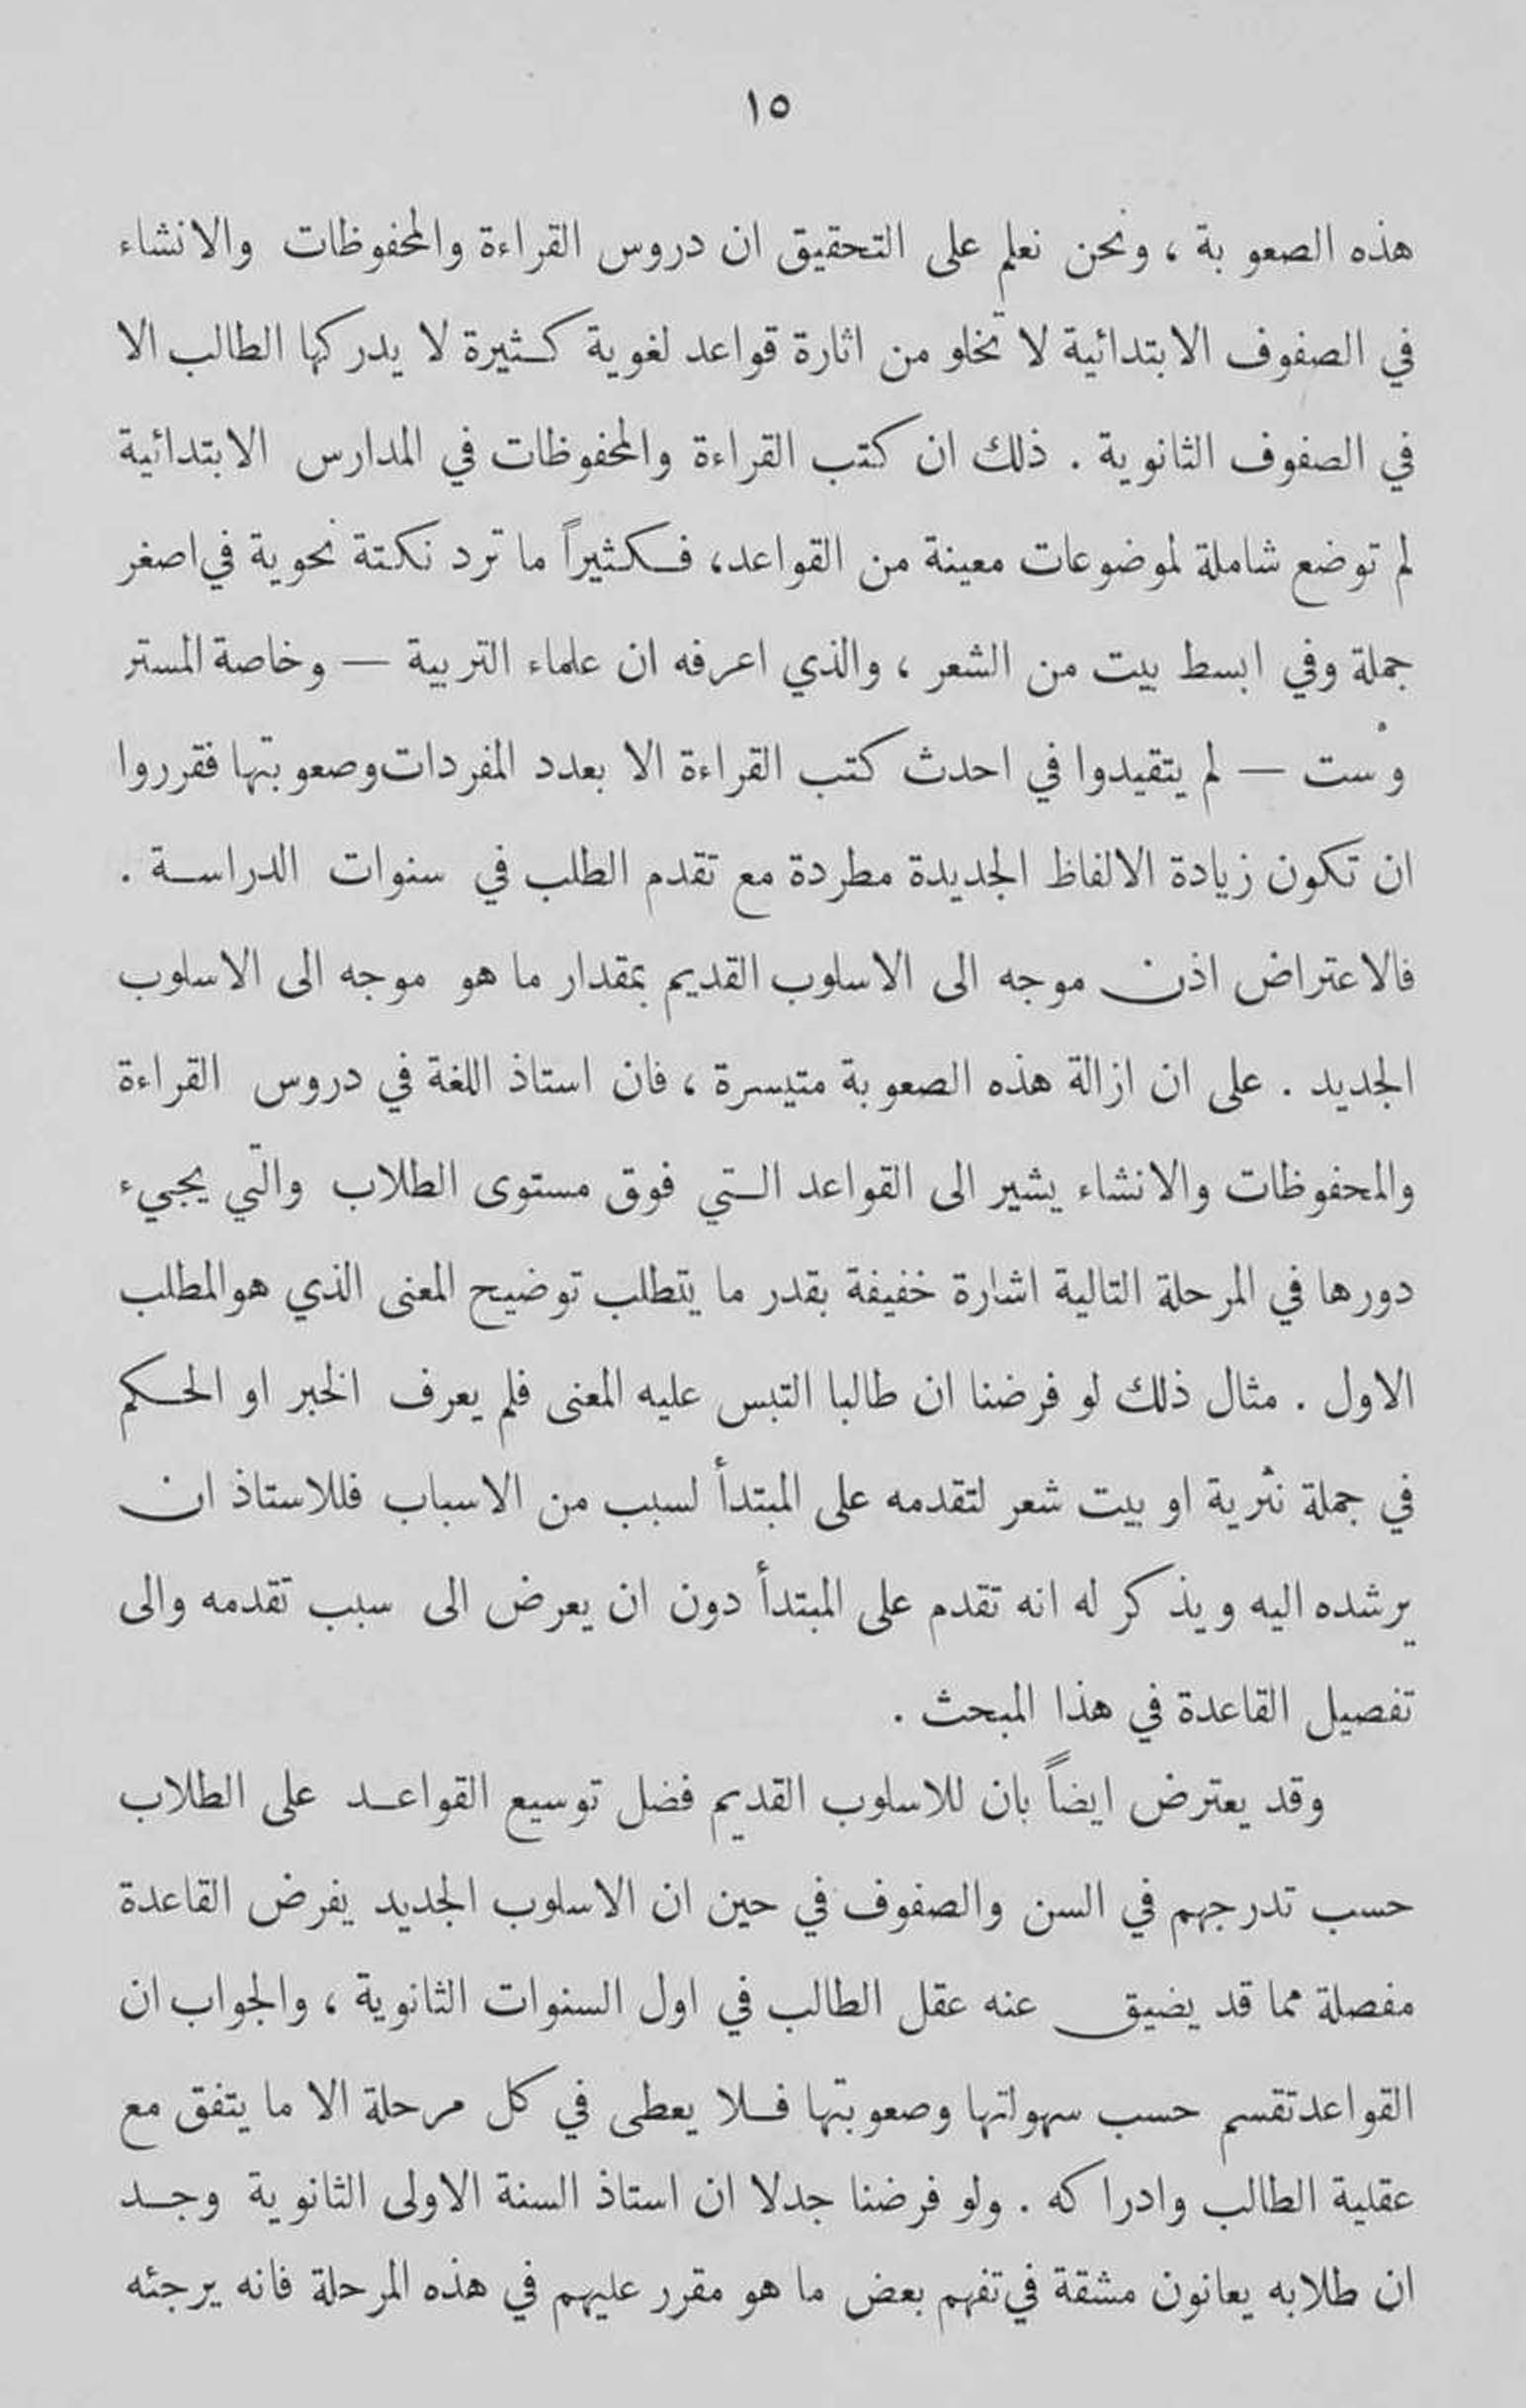 ١٥
هذه الصعوبة ، ونحن نعلم على التحقيق ان دروس القراءة والمحفوظات والانشاء
في الصفوف الابتدائية لا تخلو من اثارة قواعد لغوية كثيرة لا يدركها الطالب الا
في الصفوف الثانوية . ذلك ان كتب القراءة والمحفوظات في المدارس الابتدائية
لم توضع شاملة لموضوعات معينة من القواعد، فكثيراً ما ترد نكتة نحوية في اصغر
جملة وفي ابسط بيت من الشعر ، والذي اعرفه ان علماء التربية — وخاصة المستر
وْست — لم يتقيدوا في احدث كتب القراءة الا بعدد المفردات وصعوبتها فقرروا
ان تكون زيادة الالفاظ الجديدة مطردة مع تقدم الطلب في سنوات الدراسة .
فالاعتراض اذن موجه الى الاسلوب القديم بمقدار ما هو موجه الى الاسلوب
الجديد . على ان ازالة هذه الصعوبة متيسرة ، فان استاذ اللغة في دروس القراءة
والمحفوظات والانشاء يشير الى القواعد التي فوق مستوى الطلاب والتي يجيء
دورها في المرحلة التالية اشارة خفيفة بقدر ما يتطلب توضيح المعنى الذي هو المطلب
الاول . مثال ذلك لو فرضنا ان طالبا التبس عليه المعنى فلم يعرف الخبر او الحكم
في جملة نثرية او بيت شعر لتقدمه على المبتدأ لسبب من الاسباب فللاستاذ ان
يرشده اليه ويذكر له انه تقدم على المبتدأ دون ان يعرض الى سبب تقدمه والى
تفصيل القاعدة في هذا المبحث .
وقد يعترض ايضاً بان للاسلوب القديم فضل توسيع القواعد على الطلاب
حسب تدرجهم في السن والصفوف في حين ان الاسلوب الجديد يفرض القاعدة
مفصلة مما قد يضيق عنه عقل الطالب في اول السنوات الثانوية ، والجواب ان
القواعد تقسم حسب سهولتها وصعوبتها فلا يعطى في كل مرحلة الا ما يتفق مع
عقلية الطالب وادراكه . ولو فرضنا جدلا ان استاذ السنة الاولى الثانوية وجد
ان طلابه يعانون مشقة في تفهم بعض ما هو مقرر عليهم في هذه المرحلة فانه يرجئه